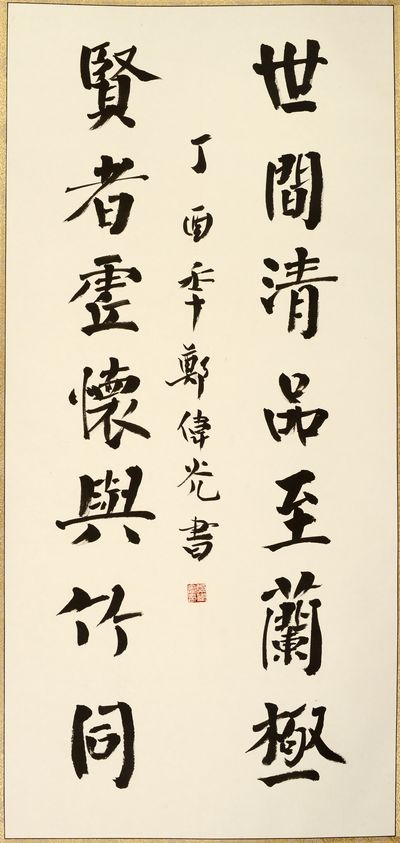 世間清品至蘭極
賢者虛懷與竹同
丁酉秊鄭偉光書